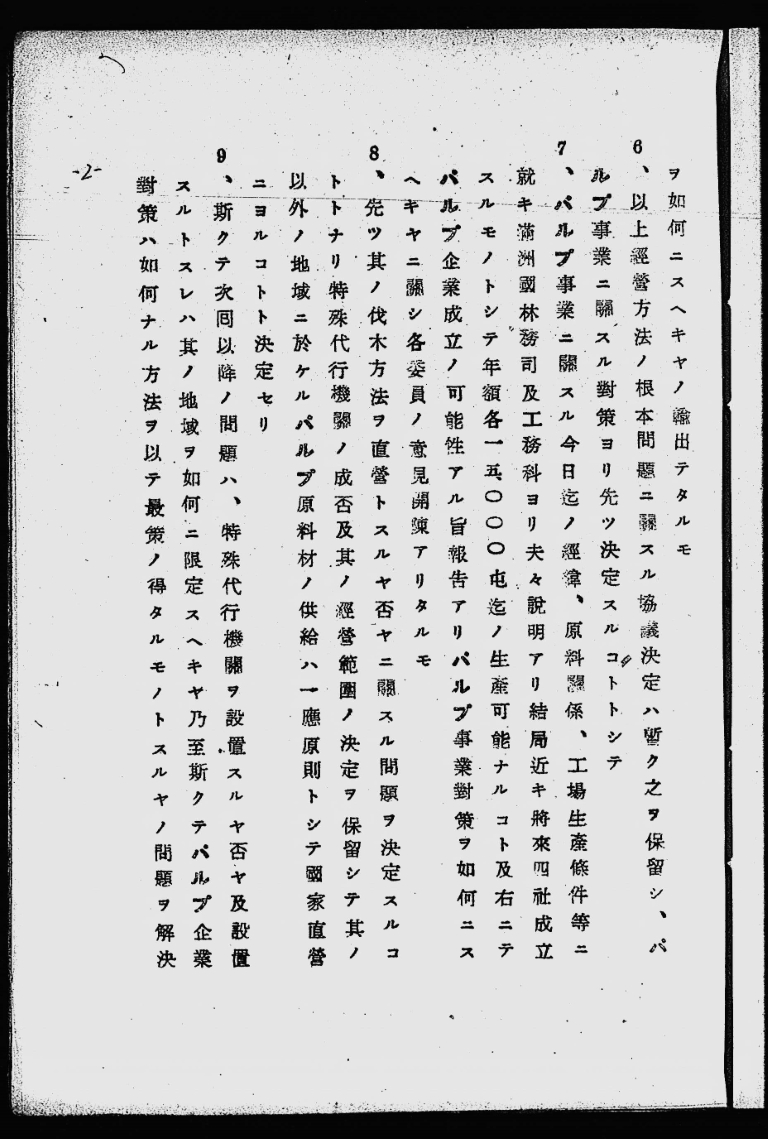 ヲ如何ニスヘキヤノ論出テタルモ
6、以上經營方法ノ根本問題ニ關スル協議決定ハ暫ク之ヲ保留シ、パ
ルプ事業ニ關スル對策ヨリ先ツ決定スルコトトシテ
7、パルプ事業ニ關スル今日迄ノ經緯、原料關係、工場生產條件等ニ
就キ滿洲國林務司及工務科ヨリ夫々說明アリ結局近キ將來四社成立
スルモノトシテ年額各一五、〇〇〇屯迄ノ生產可能ナルコト及右ニテ
パルプ企業成立ノ可能性アル旨報告アリパルプ事業對策ヲ如何ニス
ヘキヤニ關シ各委員ノ意見開陳アリタルモ
8、先ツ其ノ伐木方法ヲ直營トスルヤ否ヤニ關スル問題ヲ決定スルコ
トトナリ特殊代行機關ノ成否及其ノ經營範圍ノ決定ヲ保留シテ其ノ
以外ノ地域ニ於ケルパルプ原料材ノ供給ハ一應原則トシテ國家直營
ニヨルコトト決定セリ
9、斯クテ次囘以降ノ問題ハ、特殊代行機關ヲ設置スルヤ否ヤ及設置
スルトスレハ其ノ地域ヲ如何ニ限定スヘキヤ乃至斯クテパルプ企業
對策ハ如何ナル方法ヲ以テ最策ノ得タルモノトスルヤノ問題ヲ解決
-2-